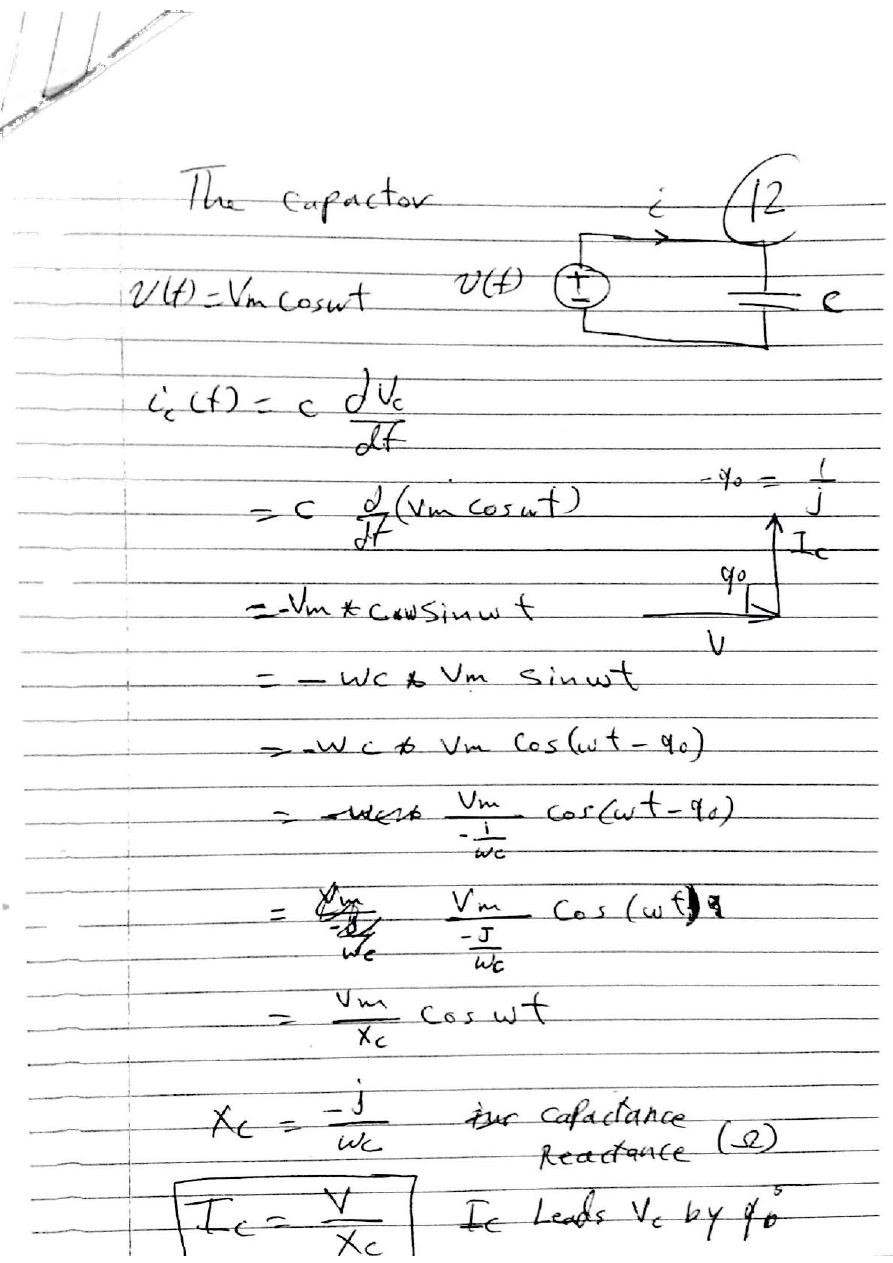 The capactor
i
12
v(t) = Vm coswt
v(t)
+
-
c
ic(t) = c dVc/dt
= c d/dt (Vm coswt)
-90 = 1/j
Ic
90
V
= -Vm * cw sinwt
= - wc * Vm sinwt
= -wc * Vm cos(wt - 90)
= Vm / (-1/wc) cos(wt - 90)
= Vm / (-J/wc) cos(wt)
= Vm/Xc cos wt
Xc = -j/wc capactance
Reactance (Ω)
Ic = V/Xc Ic Leads Vc by 90°